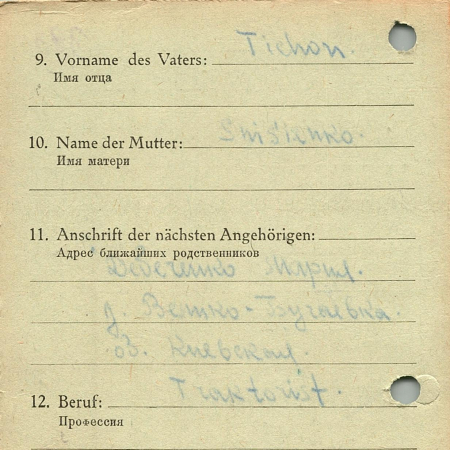 9. Vorname des Vaters: Tichon.
Имя отца
10. Name der Mutter:
Имя матери
11. Anschrift der nächsten Angehörigen:
Адрес ближайших родственников
Мария.
д. Ветко-Бугаевка.
об. Киевская.
12. Beruf: Traktorist.
Профессия